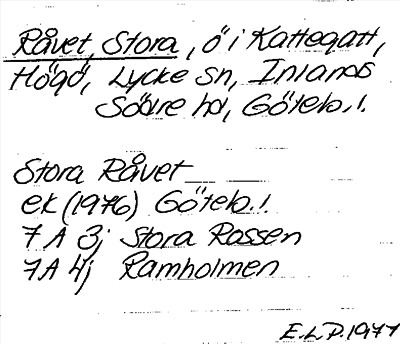 Råvet, Stora, ö i Kattegatt,
Högö, Lycke sn, Inlands
Södre hd, Göteb.l.
Stora Råvet
ek (1976) Göteb.l.
7A 3j Stora Rossen
7A 4j Ramholmen
E.L.P. 1977